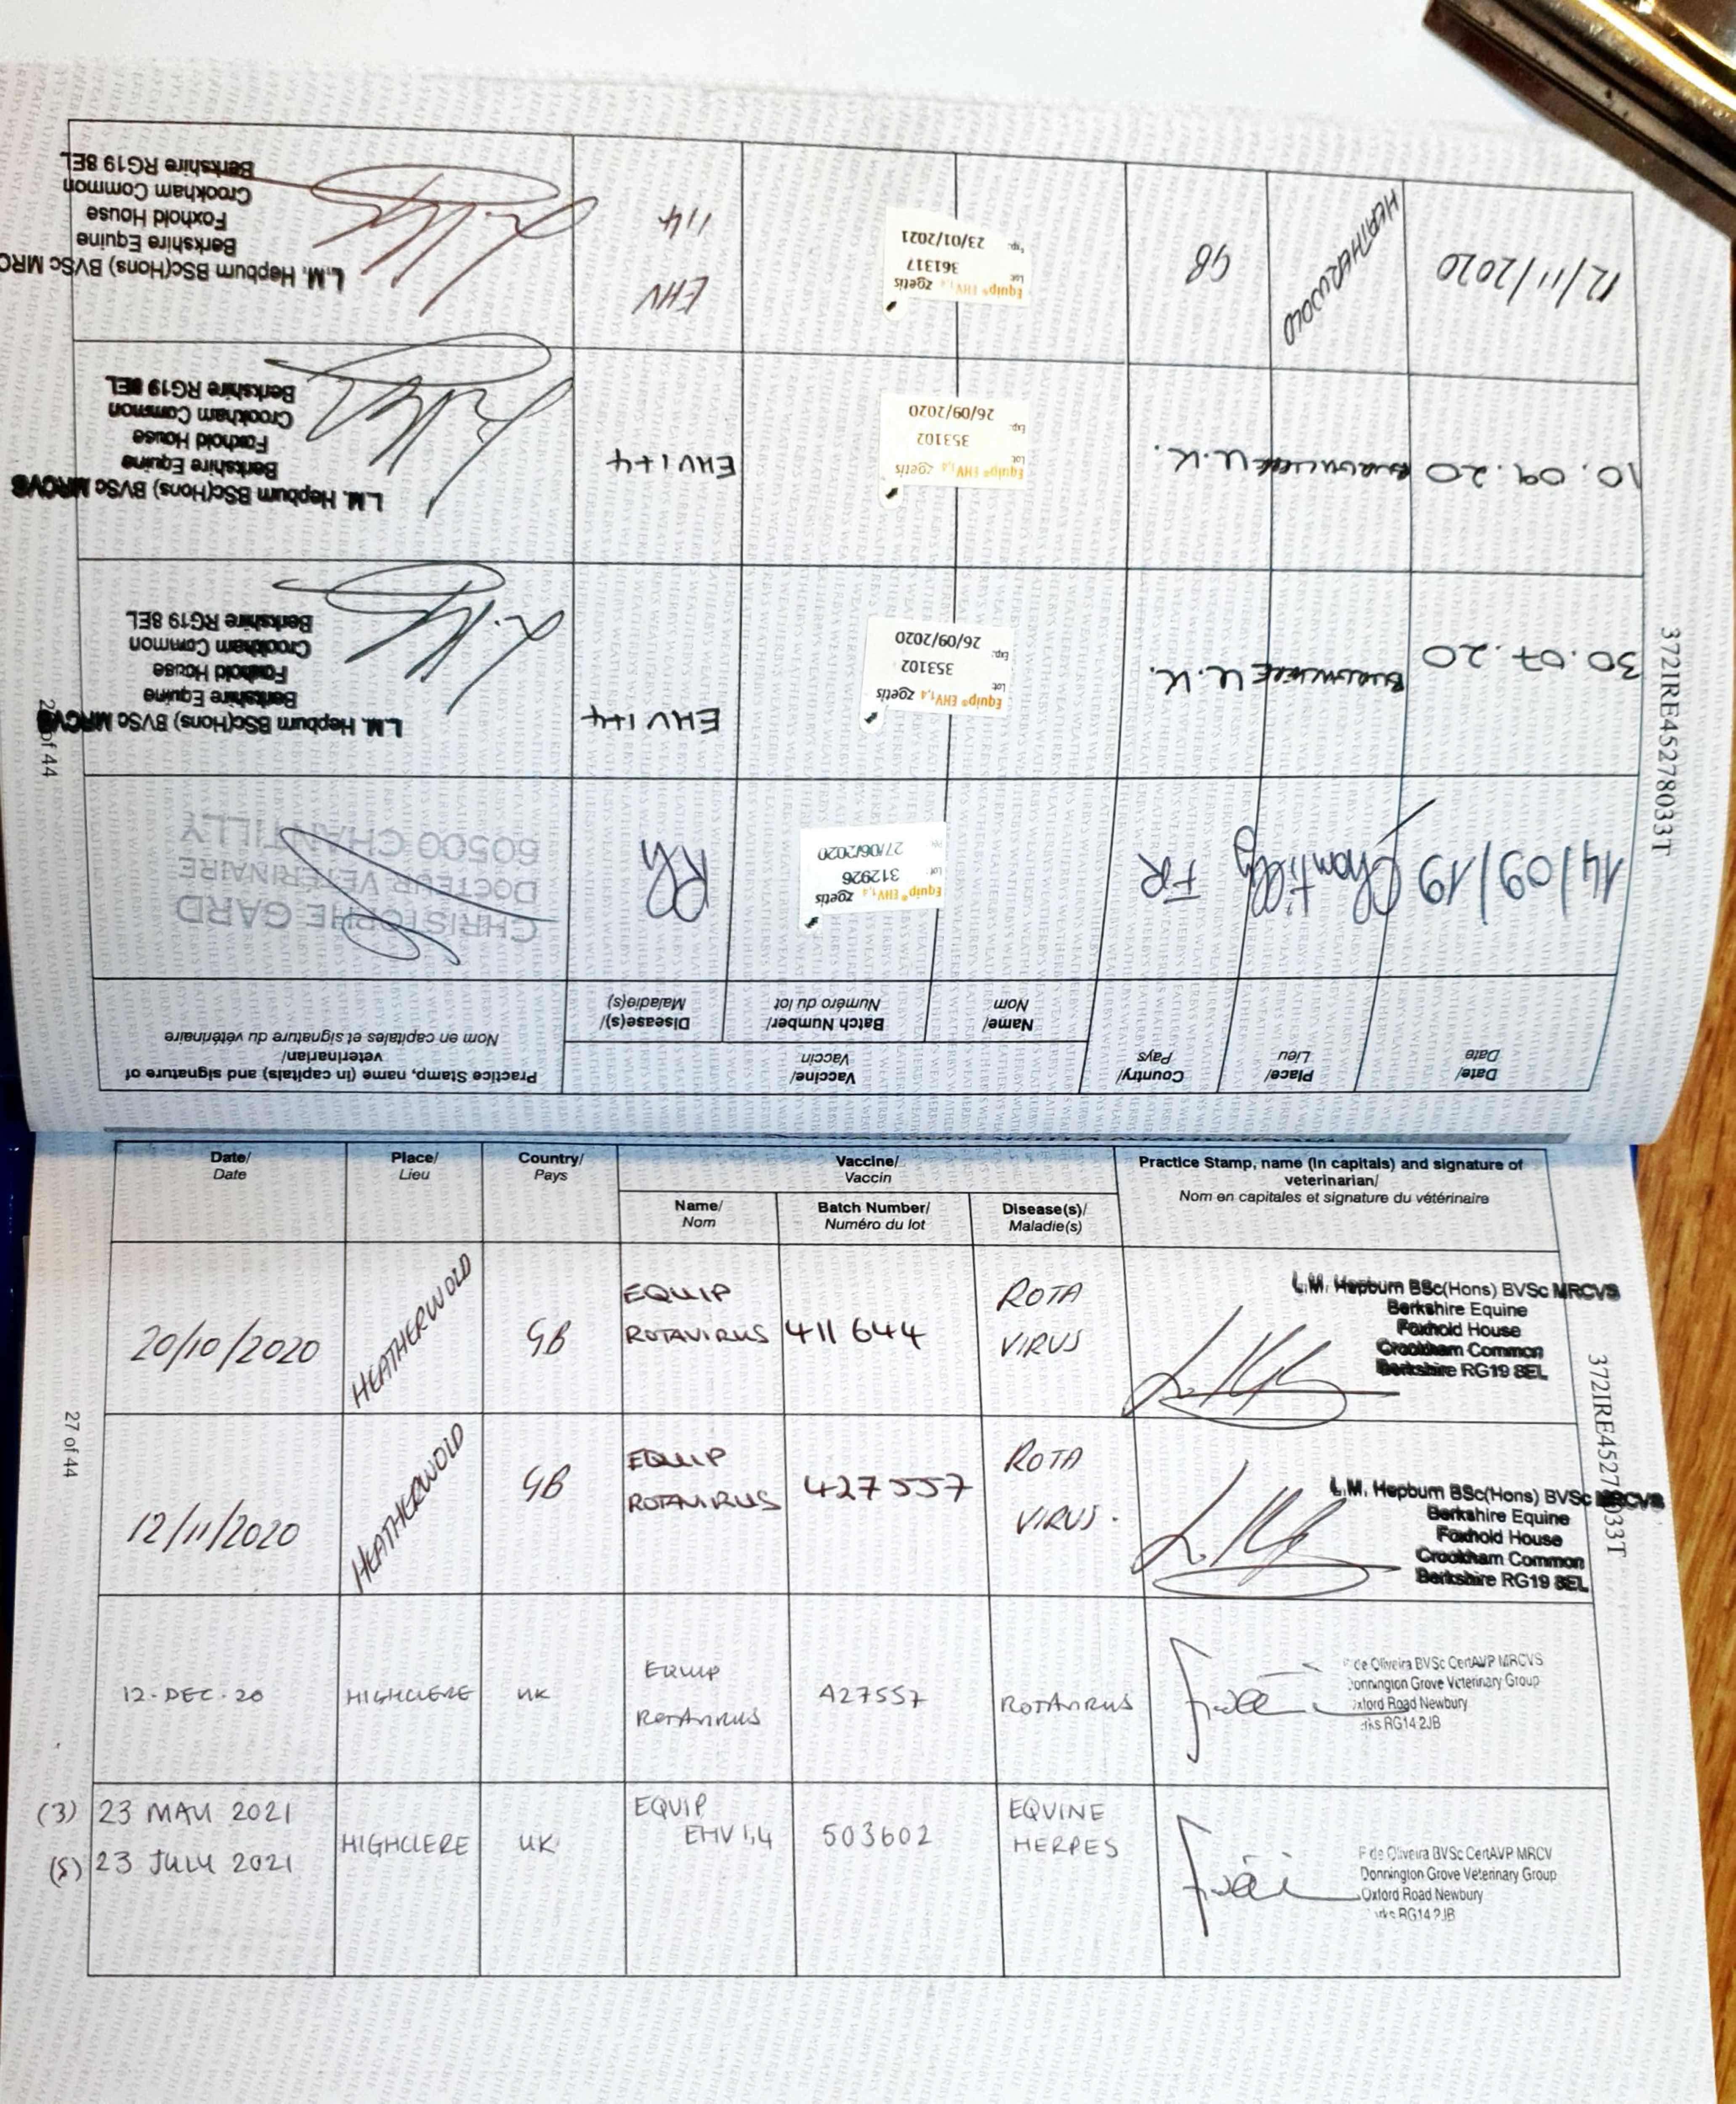 Date/
Date
Place/
Lieu
Country/
Pays
Vaccine/
Vaccin
Practice Stamp, name (in capitals) and signature of
veterinarian/
Nom en capitales et signature du vétérinaire
Name/
Nom
Batch Number/
Numéro du lot
Disease(s)/
Maladie(s)
14/09/19
Chantilly
FR
Equip® EHV1,4 zoetis
Lot: 312926
27/06/2020
CHRISTOPHE GARD
DOCTEUR VETERINAIRE
60500 CHANTILLY
30.07.20
U.K.
Equip® EHV1,4 zoetis
Lot: 353102
Exp.: 26/09/2020
EHV 1+4
L.M. Hepburn BSc(Hons) BVSc MRCVS
Berkshire Equine
Foxhold House
Crookham Common
Berkshire RG19 8EL
10.09.20
U.K.
Equip® EHV1,4 zoetis
Lot: 353102
Exp.: 26/09/2020
EHV 1+4
L.M. Hepburn BSc(Hons) BVSc MRCVS
Berkshire Equine
Foxhold House
Crookham Common
Berkshire RG19 8EL
12/11/2020
HEATHERWOLD
GB
Equip® EHV1,4 zoetis
Lot: 361317
Exp.: 23/01/2021
EHV
1,4
L.M. Hepburn BSc(Hons) BVSc MRC
Berkshire Equine
Foxhold House
Crookham Common
Berkshire RG19 8EL
372IRE45278033T
of 44
Date/
Date
Place/
Lieu
Country/
Pays
Vaccine/
Vaccin
Practice Stamp, name (in capitals) and signature of
veterinarian/
Nom en capitales et signature du vétérinaire
Name/
Nom
Batch Number/
Numéro du lot
Disease(s)/
Maladie(s)
20/10/2020
HEATHERWOLD
GB
EQUIP
ROTAVIRUS
411644
ROTA
VIRUS
L.M. Hepburn BSc(Hons) BVSc MRCVS
Berkshire Equine
Foxhold House
Crookham Common
Berkshire RG19 8EL
12/11/2020
HEATHERWOLD
GB
EQUIP
ROTAVIRUS
427557
ROTA
VIRUS.
L.M. Hepburn BSc(Hons) BVSc MRCVS
Berkshire Equine
Foxhold House
Crookham Common
Berkshire RG19 8EL
12-DEC-20
HIGHCLERE
UK
EQUIP
ROTAVIRUS
A27557
ROTAVIRUS
de Oliveira BVSc CertAVP MRCVS
Donnington Grove Veterinary Group
Oxford Road Newbury
RG14 2JB
(3) 23 MAY 2021
(5) 23 JULY 2021
HIGHCLERE
UK
EQUIP
EHV 1,4
503602
EQUINE
HERPES
F de Oliveira BVSc CertAVP MRCV
Donnington Grove Veterinary Group
Oxford Road Newbury
RG14 2JB
27 of 44
372IRE4527 033T